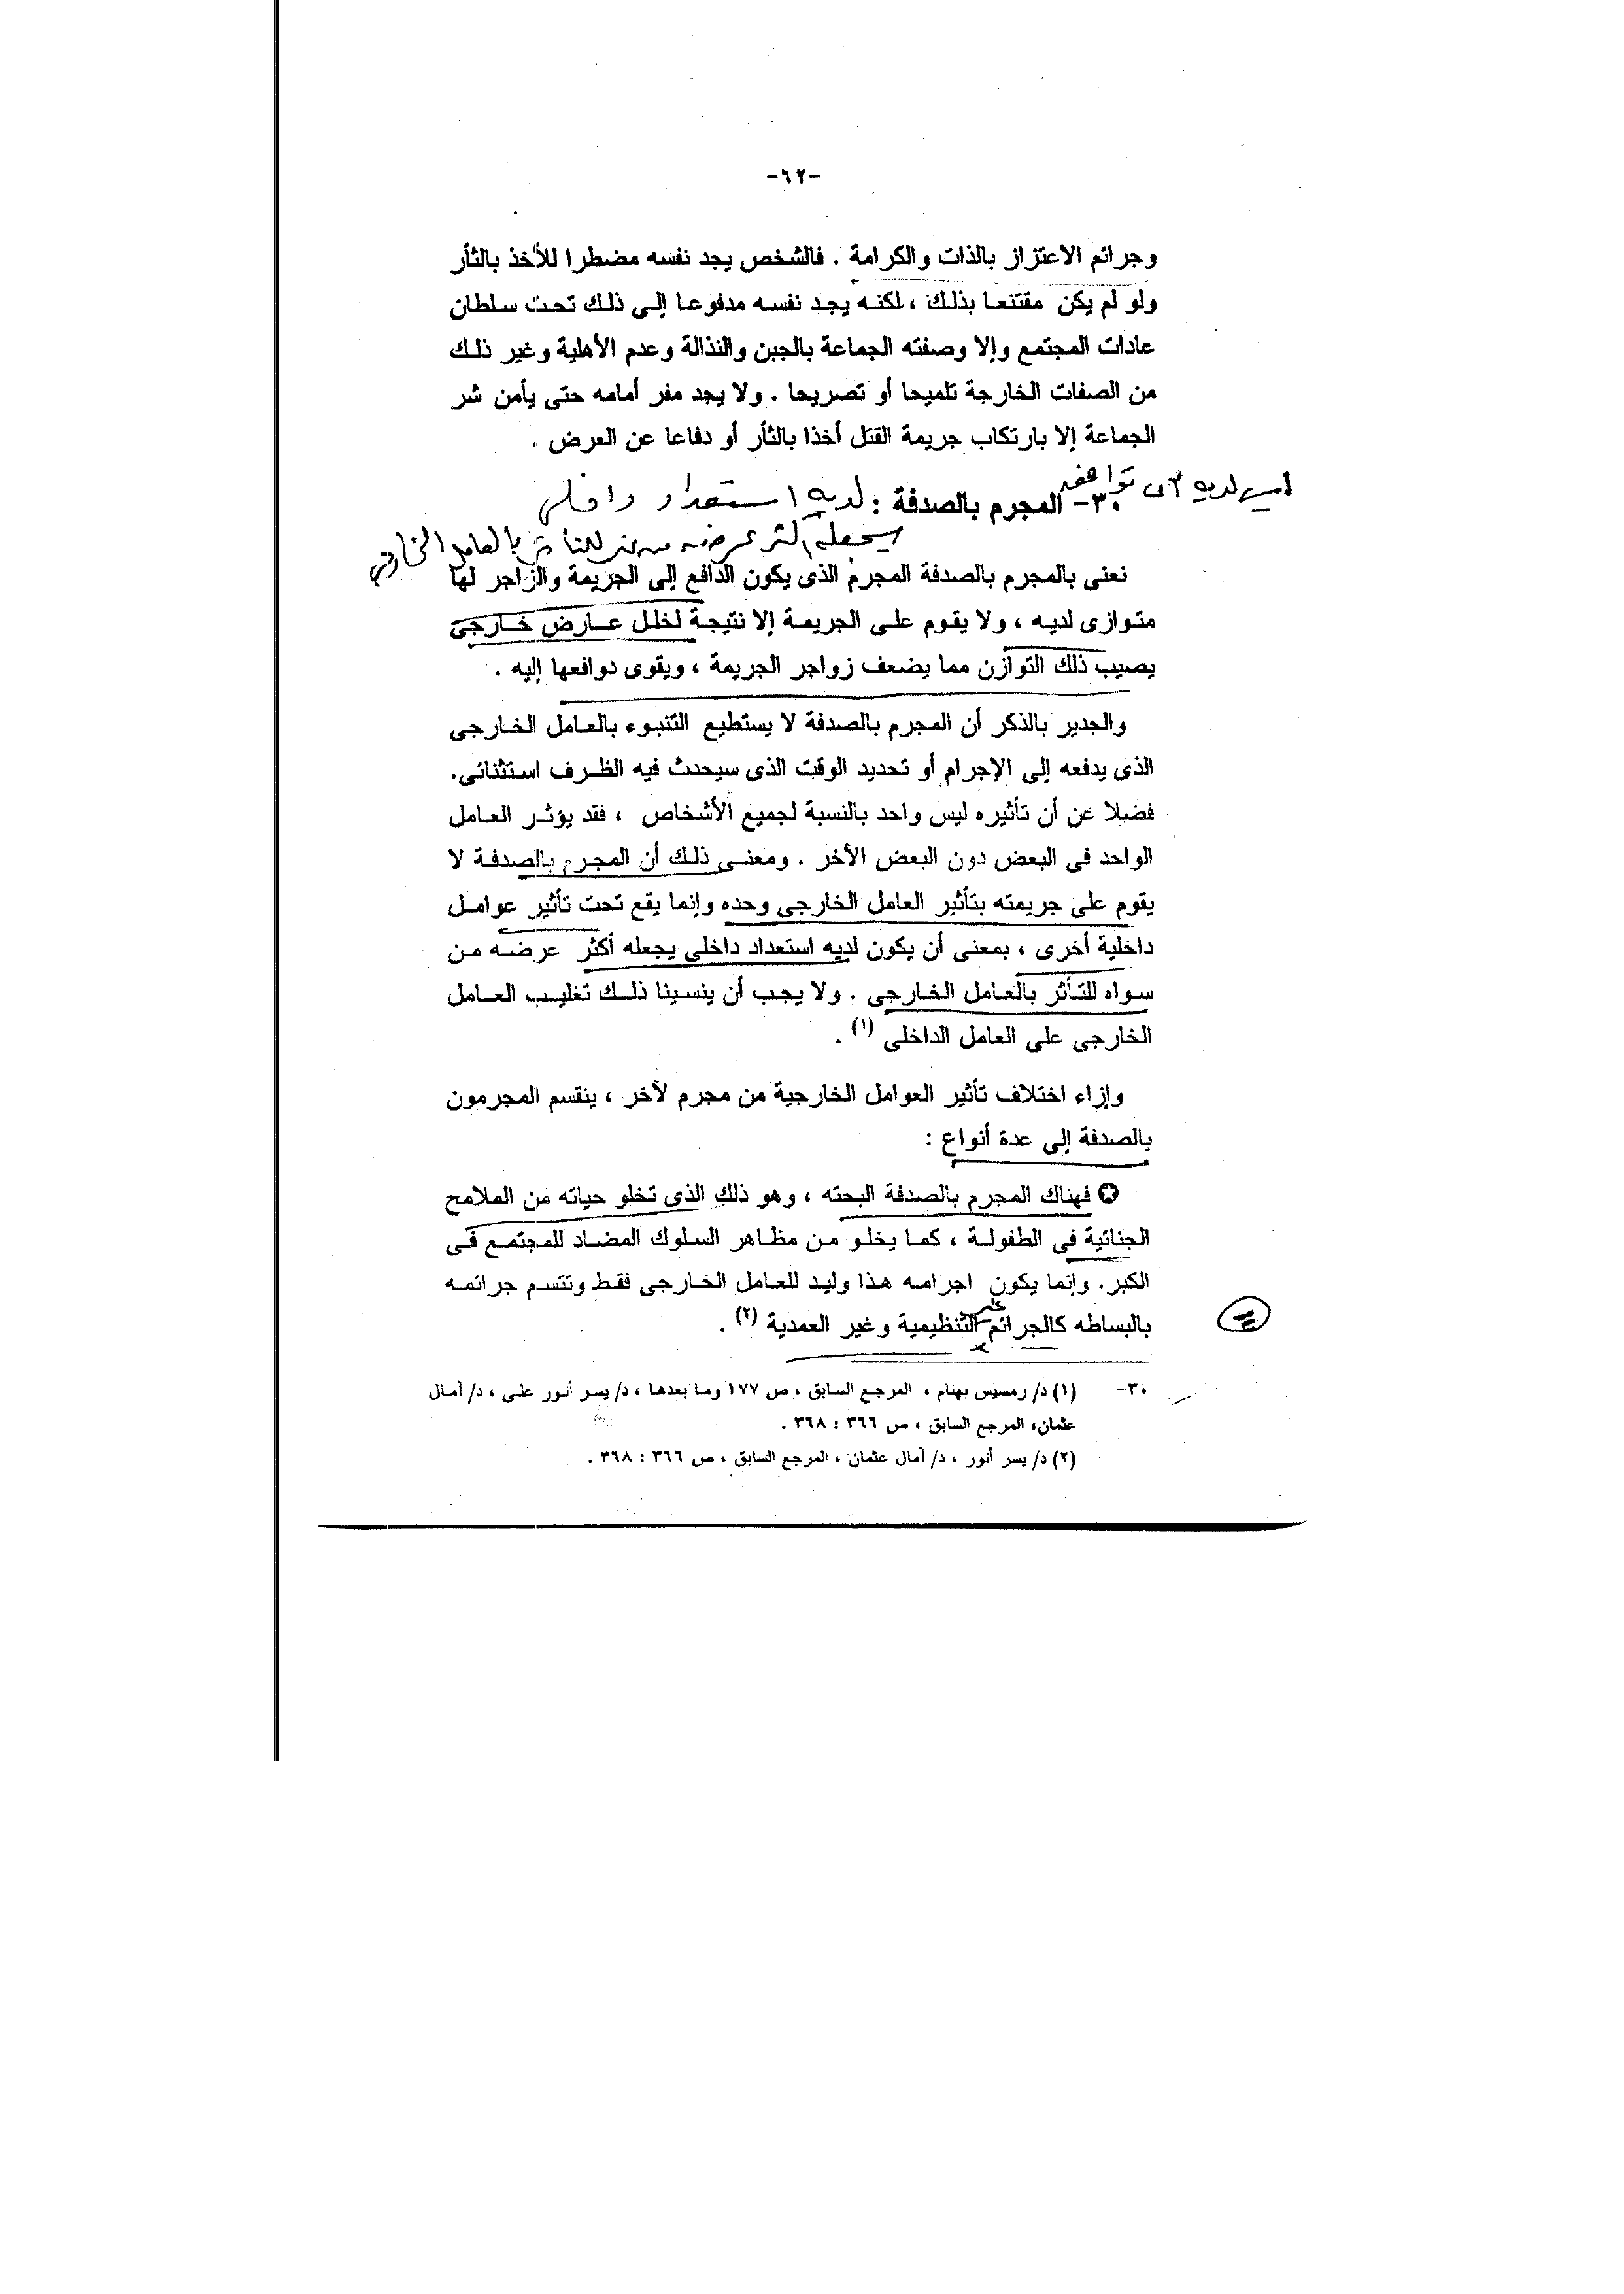 -٦٢-
وجرائم الاعتزاز بالذات والكرامة . فالشخص يجد نفسه مضطرا للأخذ بالثأر
ولو لم يكن مقتنعا بذلك ، لكنه يجد نفسه مدفوعا إلى ذلك تحت سلطان
عادات المجتمع وإلا وصفته الجماعة بالجبن والنذالة وعدم الأهلية وغير ذلك
من الصفات الخارجة تلميحا أو تصريحا . ولا يجد مفر أمامه حتى يأمن شر
الجماعة إلا بارتكاب جريمة القتل أخذا بالثأر أو دفاعا عن العرض .
ليس لديه
٣٠- المجرم بالصدفة : لديه استعداد داخلي
يجعله أكثر عرضه من غيره للتأثر بالعامل الخارجي
نعنى بالمجرم بالصدفة المجرم الذى يكون الدافع إلى الجريمة والزاجر لها
متوازى لديه ، ولا يقوم على الجريمة إلا نتيجة لخلل عارض خارجى
يصيب ذلك التوازن مما يضعف زواجر الجريمة ، ويقوى دوافعها إليه .
والجدير بالذكر أن المجرم بالصدفة لا يستطيع التنبوء بالعامل الخارجى
الذى يدفعه إلى الإجرام أو تحديد الوقت الذى سيحدث فيه الظرف استثنائى.
فضلا عن أن تأثيره ليس واحد بالنسبة لجميع الأشخاص ، فقد يؤثر العامل
الواحد فى البعض دون البعض الآخر . ومعنى ذلك أن المجرم بالصدفة لا
يقوم على جريمته بتأثير العامل الخارجى وحده وإنما يقع تحت تأثير عوامل
داخلية أخرى ، بمعنى أن يكون لديه استعداد داخلى يجعله أكثر عرضه من
سواه للتأثر بالعامل الخارجى . ولا يجب أن ينسينا ذلك تغليب العامل
الخارجى على العامل الداخلى (١) .
وإزاء اختلاف تأثير العوامل الخارجية من مجرم لآخر ، ينقسم المجرمون
بالصدفة إلى عدة أنواع :
✪ فهناك المجرم بالصدفة البحته ، وهو ذلك الذى تخلو حياته من الملامح
الجنائية فى الطفولة ، كما يخلو من مظاهر السلوك المضاد للمجتمع فى
الكبر. وإنما يكون اجرامه هذا وليد للعامل الخارجى فقط وتتسم جرائمه
بالبساطه كالجرائم غير التنظيمية وغير العمدية (٢) .
٣٠- (١) د/ رمسيس بهنام ، المرجع السابق ، ص ١٧٧ وما بعدها ، د/ يسر أنور على ، د/ أمال
عثمان، المرجع السابق ، ص ٣٦٦ : ٣٦٨ .
(٢) د/ يسر أنور ، د/ أمال عثمان ، المرجع السابق ، ص ٣٦٦ : ٣٦٨ .